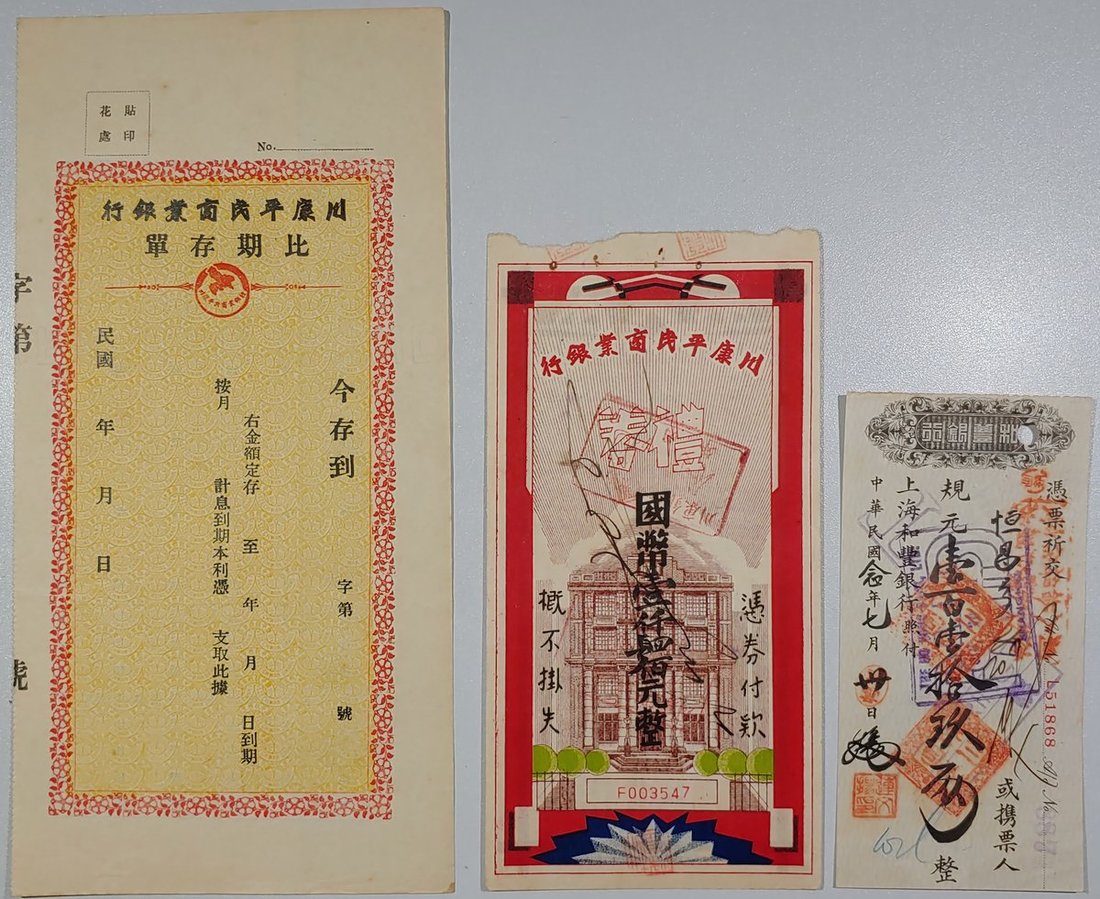 貼印
花處
No.
川康平民商業銀行
比期存單
今存到
字第 號
右金額定存 至 年 月 日到期
按月 計息到期本利憑 支取此據
民國 年 月 日
字第 號
川康平民商業銀行
禮券
憑券付欵
國幣壹仟肆佰元整
概不掛失
F003547
憑票祈交
或攜票人
規元壹百壹拾玖兩整
上海和豐銀行照付
中華民國念年七月卅日
L51868
No.